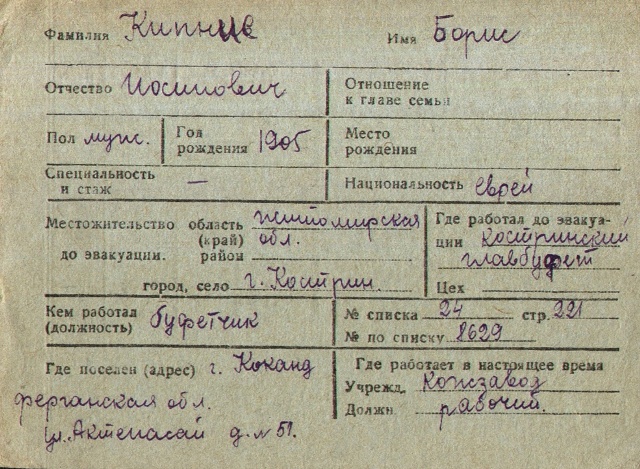 Фамилия Кипнис Имя Борис
Отчество Иосипович Отношение к главе семьи
Пол муж. Год рождения 1905 Место рождения
Специальность и стаж — Национальность еврей
Местожительство область житомирская
(край) обл.
до эвакуации. район
город, село г. Кострин.
Где работал до эвакуа-
ции костринский
главбуфет
Цех
Кем работал
(должность) буфетчик
№ списка 24 стр. 221
№ по списку 8629
Где поселен (адрес) г. Коканд
ферганская обл.
ул. Актепасай д. № 51.
Где работает в настоящее время
Учрежд. Кожзавод
Должн рабочий.